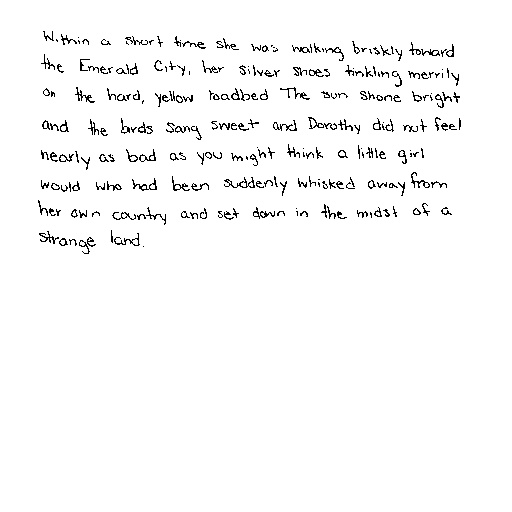 Within a short time she was walking briskly toward
the Emerald City, her silver shoes tinkling merrily
on the hard, yellow roadbed The sun shone bright
and the birds sang sweet and Dorothy did not feel
nearly as bad as you might think a little girl
would who had been suddenly whisked away from
her own country and set down in the midst of a
strange land.